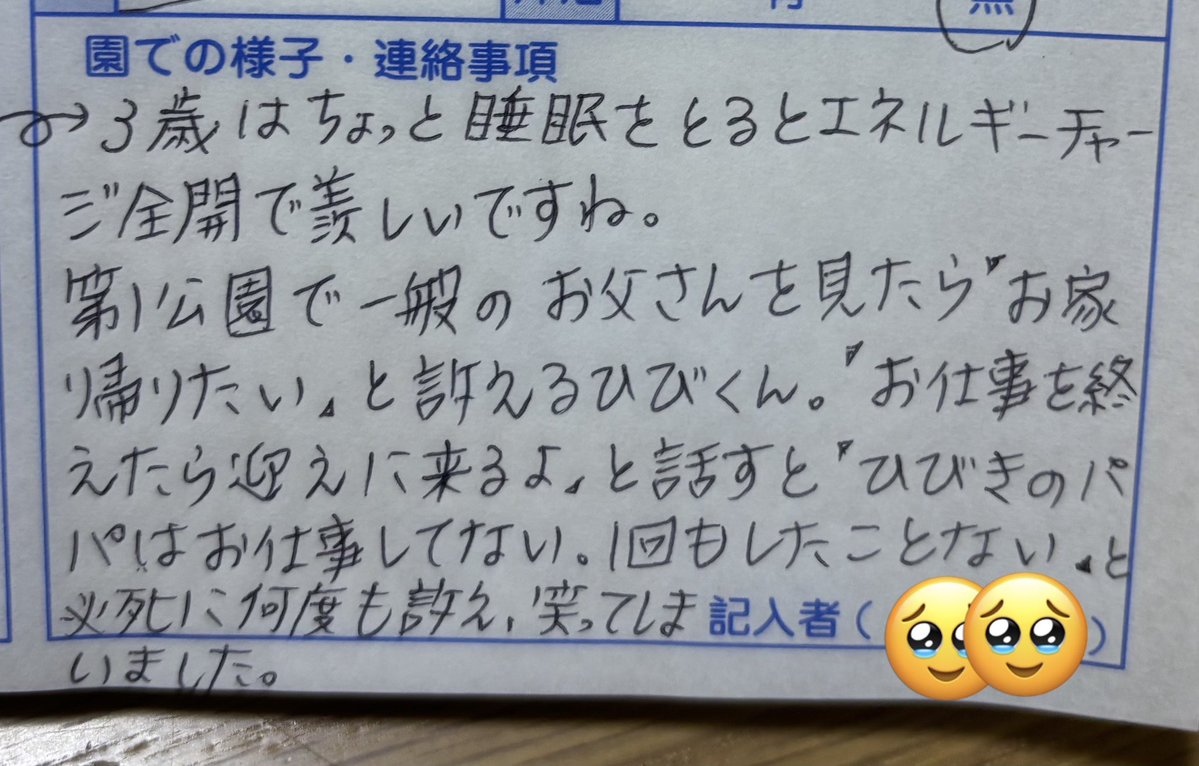 園での様子・連絡事項
→3歳はちょっと睡眠をとるとエネルギーチャー
ジ全開で羨しいですね。
第1公園で一般のお父さんを見たら『お家
帰りたい』と訴えるひびくん。『お仕事を終
えたら迎えに来るよ』と話すと『ひびきのパ
パはお仕事してない。1回もしたことない』と
必死に何度も訴え、笑ってしま
記入者( )
いました。